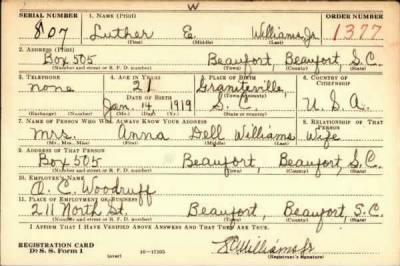 W
SERIAL NUMBER 1. NAME (Print) ORDER NUMBER
807 Luther E. Williams Jr 1377
(First) (Middle) (Last)
2. ADDRESS (Print)
Box 505 Beaufort Beaufort, S.C.
(Number and street or R. F. D. number) (Town) (County) (State)
3. TELEPHONE 4. AGE IN YEARS 5. PLACE OF BIRTH 6. COUNTRY OF CITIZENSHIP
none 21 Graniteville,
(Town or county)
DATE OF BIRTH
Jan 14 1919 S.C. U.S.A.
(Exchange) (Number) (Mo.) (Day) (Yr.) (State or country)
7. NAME OF PERSON WHO WILL ALWAYS KNOW YOUR ADDRESS 8. RELATIONSHIP OF THAT PERSON
Mrs. Anna Dell Williams Wife
(Mr., Mrs., Miss) (First) (Middle) (Last)
9. ADDRESS OF THAT PERSON
Box 505 Beaufort, Beaufort, S.C.
(Number and street or R. F. D. number) (Town) (County) (State)
10. EMPLOYER'S NAME
O. C. Woodruff
11. PLACE OF EMPLOYMENT OR BUSINESS
211 North St. Beaufort, Beaufort, S.C.
(Number and street or R. F. D. number) (Town) (County) (State)
I AFFIRM THAT I HAVE VERIFIED ABOVE ANSWERS AND THAT THEY ARE TRUE.
REGISTRATION CARD
D. S. S. Form 1 (over) 16-17105 Williams Jr
(Registrant's signature)